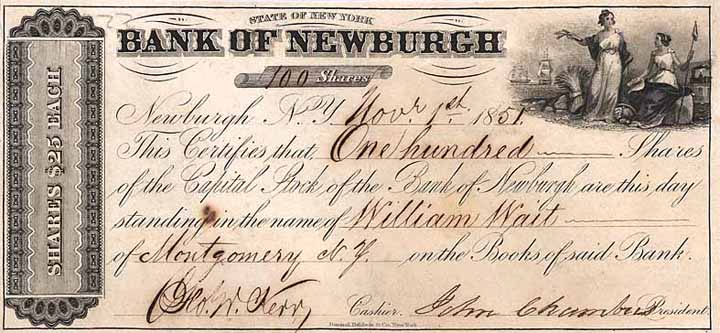 SHARES $25 EACH
STATE OF NEW YORK
BANK OF NEWBURGH
100 Shares
Newburgh N.Y. Novr. 1st 1851.
This Certifies that One hundred Shares
of the Capital Stock of the Bank of Newburgh are this day
standing in the name of William Wait
of Montgomery N.Y. on the Books of said Bank.
Geo. W. Kerr Cashier. John Chambers President.
Danforth, Baldwin & Co. New York